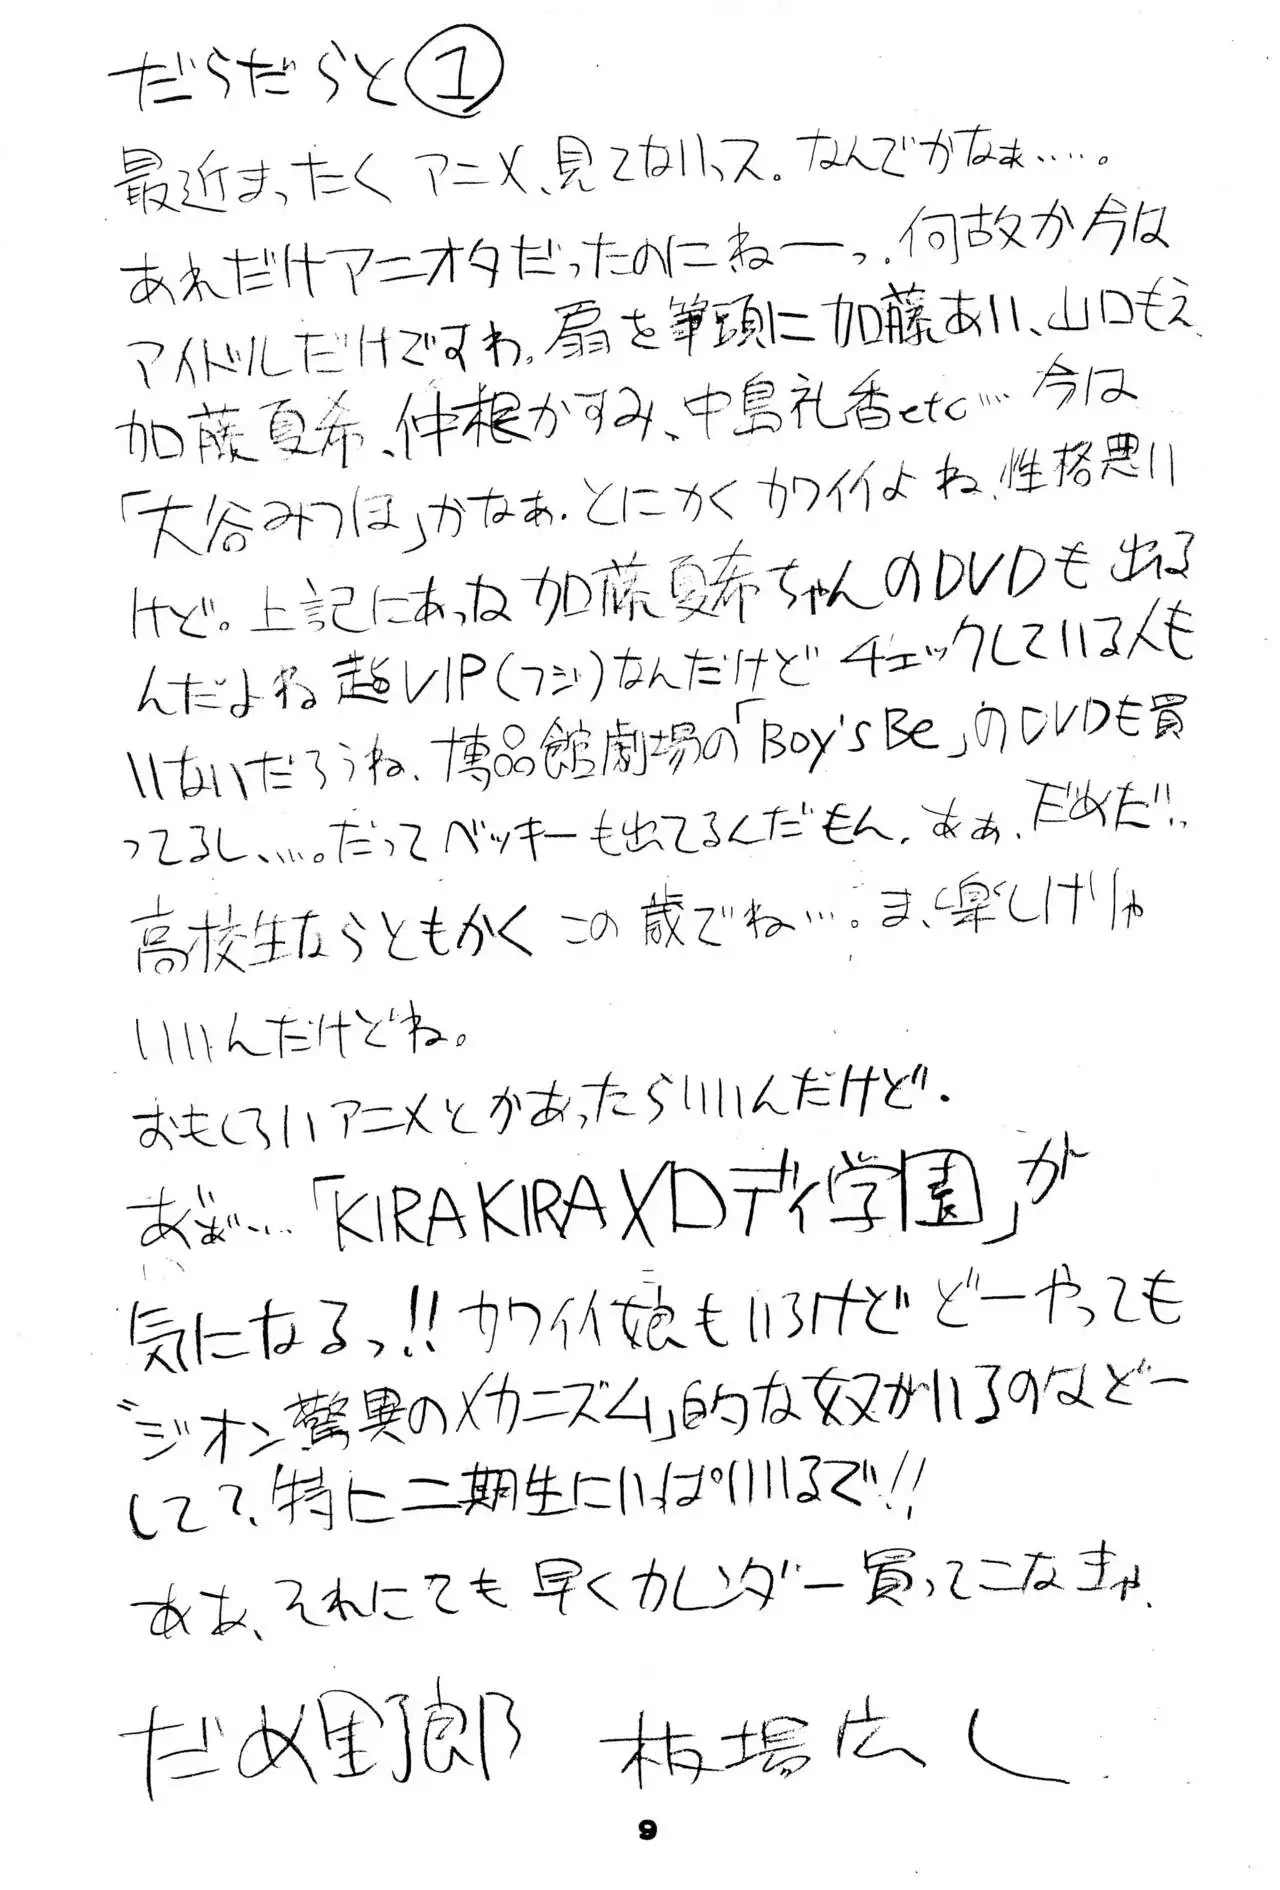 だらだらと①
最近まったくアニメ、見てないっス。なんでかなぁ……。
あれだけアニオタだったのにねーっ。何故か今は
アイドルだけですね。扇を筆頭に加藤あい、山口もえ、
加藤夏希、仲根かすみ、中島礼香etc…今は
「大谷みつほ」かなぁ。とにかくカワイイよね、性格悪い
けど。上記にあった加藤夏希ちゃんのDVDも出る
んだよね 超VIP(フジ)なんだけどチェックしている人も
いないだろうね、博品館劇場の「Boy'sBe」のDVDも買
ってるし、…。だってベッキーも出てるんだもん。あぁ、だめだ!!
高校生ならともかくこの歳でね…。ま、楽しけりゃ
いいんだけどね。
おもしろいアニメとかあったらいいんだけど。
あぁ…「KIRAKIRAメロディ学園」が
気になるっ!!カワイイ娘もいるけどどーやっても
"ジオン驚異のメカニズム」的な奴がいるのなどー
して?、特に二期生にいぱいいるで!!
ああ、それにても早くカレンダー買ってこなきゃ、
だめ野郎 板場広し
9